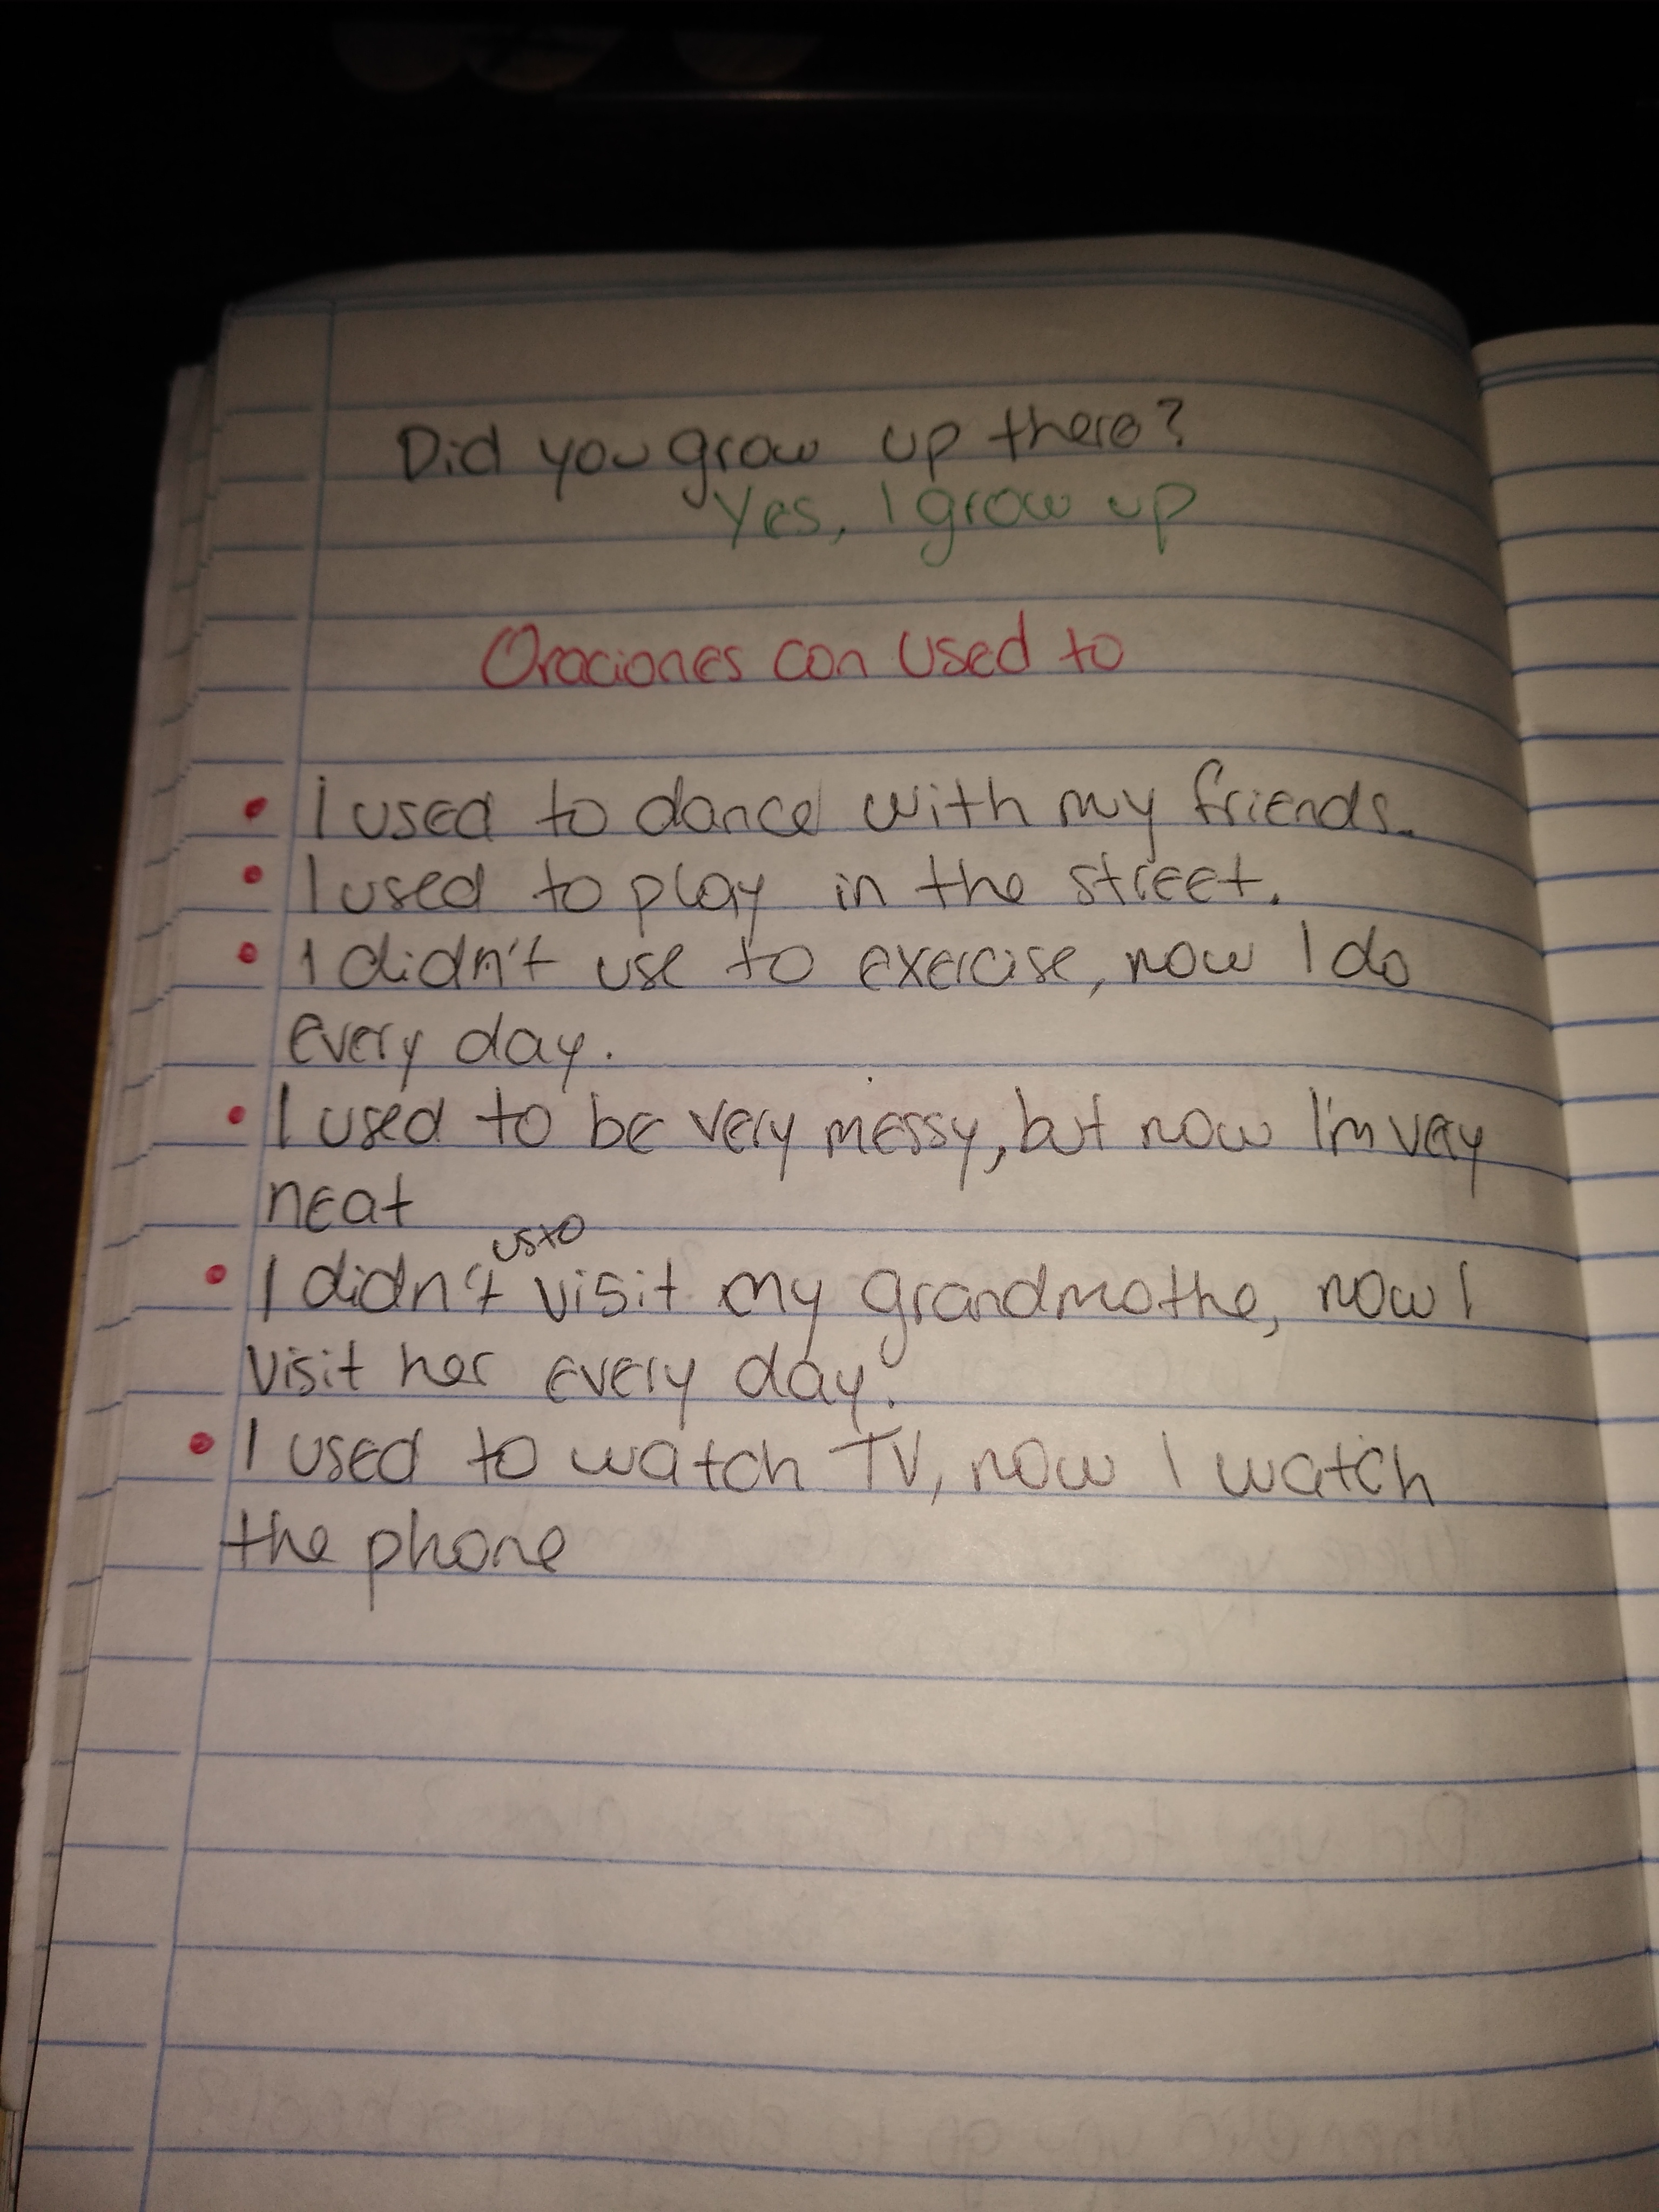 Did you grow up there?
Yes, I grow up
Oraciones con used to
• I used to dance with my friends.
• I used to play in the street.
• I didn't use to exercise, now I do
every day.
• I used to be very messy, but now I'm very
neat
usto
• I didn't visit my grandmothe, now I
visit her every day.
• I used to watch TV, now I watch
the phone